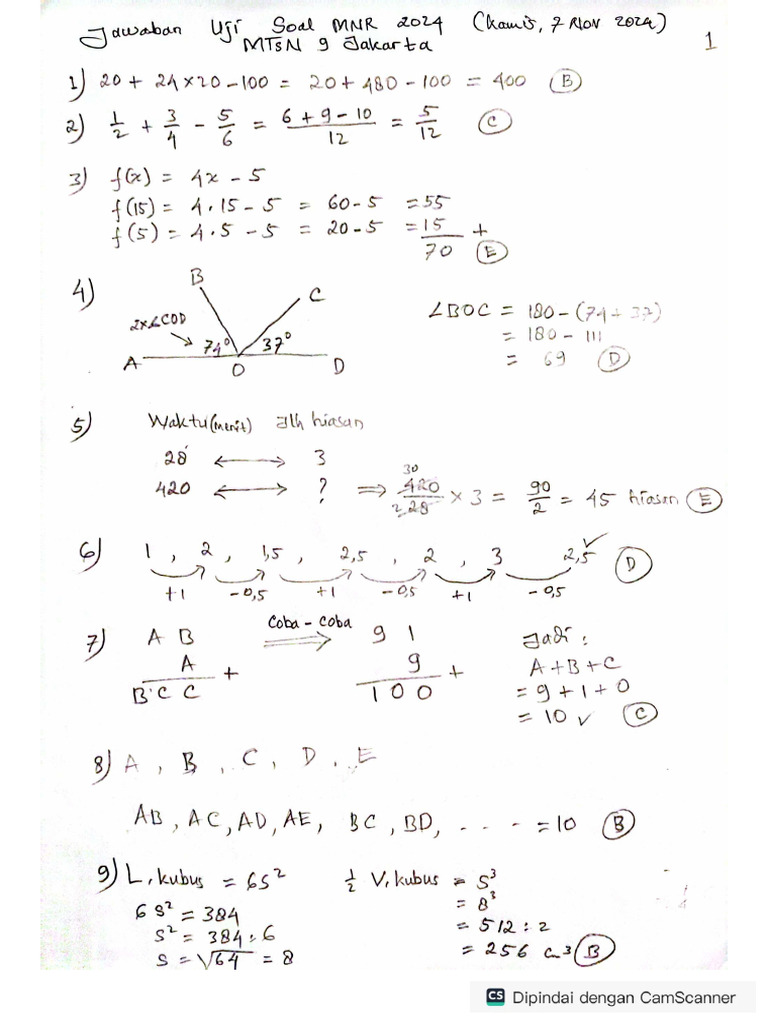 Jawaban Uji Soal MNR 2024 (Kamis, 7 Nov 2024)
MTsN 9 Jakarta
1
1) 20 + 24 × 20 - 100 = 20 + 480 - 100 = 400 (B)
2) 1/2 + 3/4 - 5/6 = (6 + 9 - 10)/12 = 5/12 (C)
3) f(x) = 4x - 5
f(15) = 4.15 - 5 = 60 - 5 = 55
f(5) = 4.5 - 5 = 20 - 5 = 15 +
70 (E)
4)
B
C
2×∠COD
74° 37°
A O D
∠BOC = 180 - (74 + 37)
= 180 - 111
= 69 (D)
5) Waktu (menit) Jlh hiasan
28 ⟷ 3
420 ⟷ ? ⇒ 30 420/28 2 × 3 = 90/2 = 45 hiasan (E)
6) 1, 2, 1,5, 2,5, 2, 3 2,5 ✓ (D)
+1 -0,5 +1 -0,5 +1 -0,5
7) A B Coba-coba ⇒ 9 1 Jadi :
A + 9 + A+B+C
B C C 100 = 9+1+0
= 10 ✓ (C)
8) A, B, C, D, E
AB, AC, AD, AE, BC, BD, . . . . = 10 (B)
9) L. kubus = 6s² 1/2 V. kubus = s³
6s² = 384 = 8³
s² = 384 : 6 = 512 : 2
s = √64 = 8 = 256 cm³ (B)
CS Dipindai dengan CamScanner